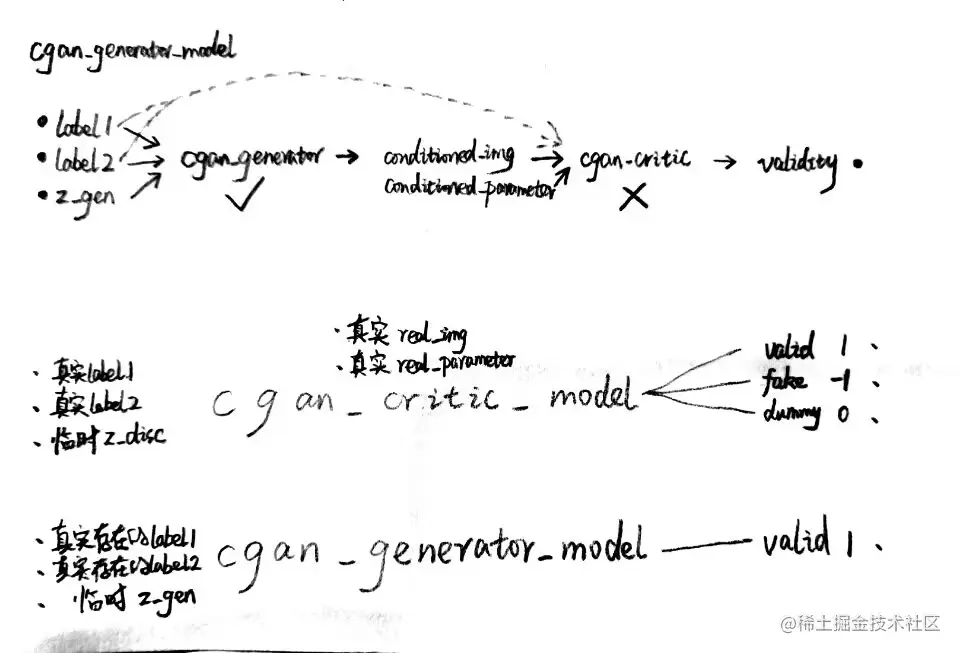 cgan_generator_model
• label1
• label2 → cgan_generator → conditioned_img → cgan-critic → validity •
conditioned_parameter
• z_gen ✓ ×
· 真实 real_img
· 真实 real_parameter
、真实label1
、真实label2
、临时 z_disc
cgan_critic_model
valid 1 、
fake -1 、
dummy 0 、
、真实存在的label1
、真实存在的label2
、临时 z_gen
cgan_generator_model — valid 1 、
@稀土掘金技术社区